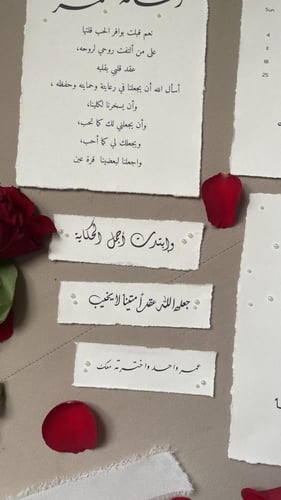 نعم قبلت بوافر الحب قلتها
على من ألتفت روحي لروحه،
عقد قلبي بقلبه
أسأل الله أن يجعلنا في رعايتة وحمايته وحفظه ،
وأن يسخرنا لكلينا،
وأن يجعلني لك كما تحب،
ويجعلك لي كما أحب،
واجعلنا لبعضينا قرة عين
Sun
4
11
18
25
وابتدت أجمل الحكاية
جعله الله عقداً متيناً لا يخيب
عمر واحد واخترته معك